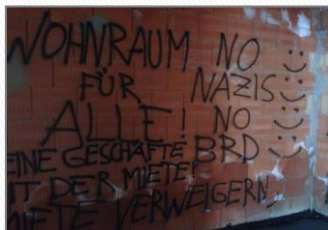 WOHNRAUM NO :)
FÜR NAZIS :)
ALLE! NO :)
EINE GESCHÄFTE BRD :)
IT DER MIETE!
MIETE VERWEIGERN,